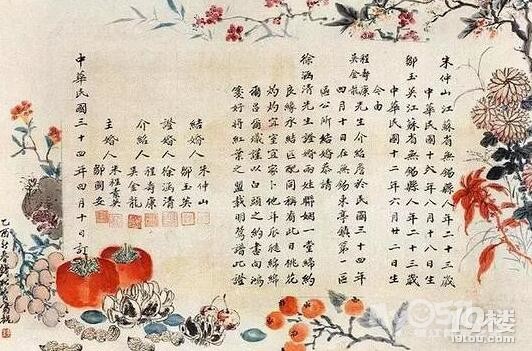 朱仲山江蘇省無錫縣人年二十三歲
中華民國十六年八月十八日生
鄒玉英江蘇省無錫縣人年二十三歲
中華民國十二年六月廿二日生
今由
程壽康
吳金龍先生介紹詹於民國三十四年
四月十日在無錫東亭鎮第一區
區公所結婚恭請
徐涵清先生證婚兩姓聯姻一堂締約
良緣永結匹配同稱看此日桃花
灼灼宜室宜家卜他年瓜瓞綿綿
爾昌爾熾謹以白頭之約書向鴻
箋好將紅葉之盟載明鴛譜此證
結婚人 朱仲山
鄒玉英
證婚人 徐涵清
介紹人 程壽康
吳金龍
主婚人 朱程素英
鄒國安
中華民國三十四年四月十日訂
19樓
19lou.com